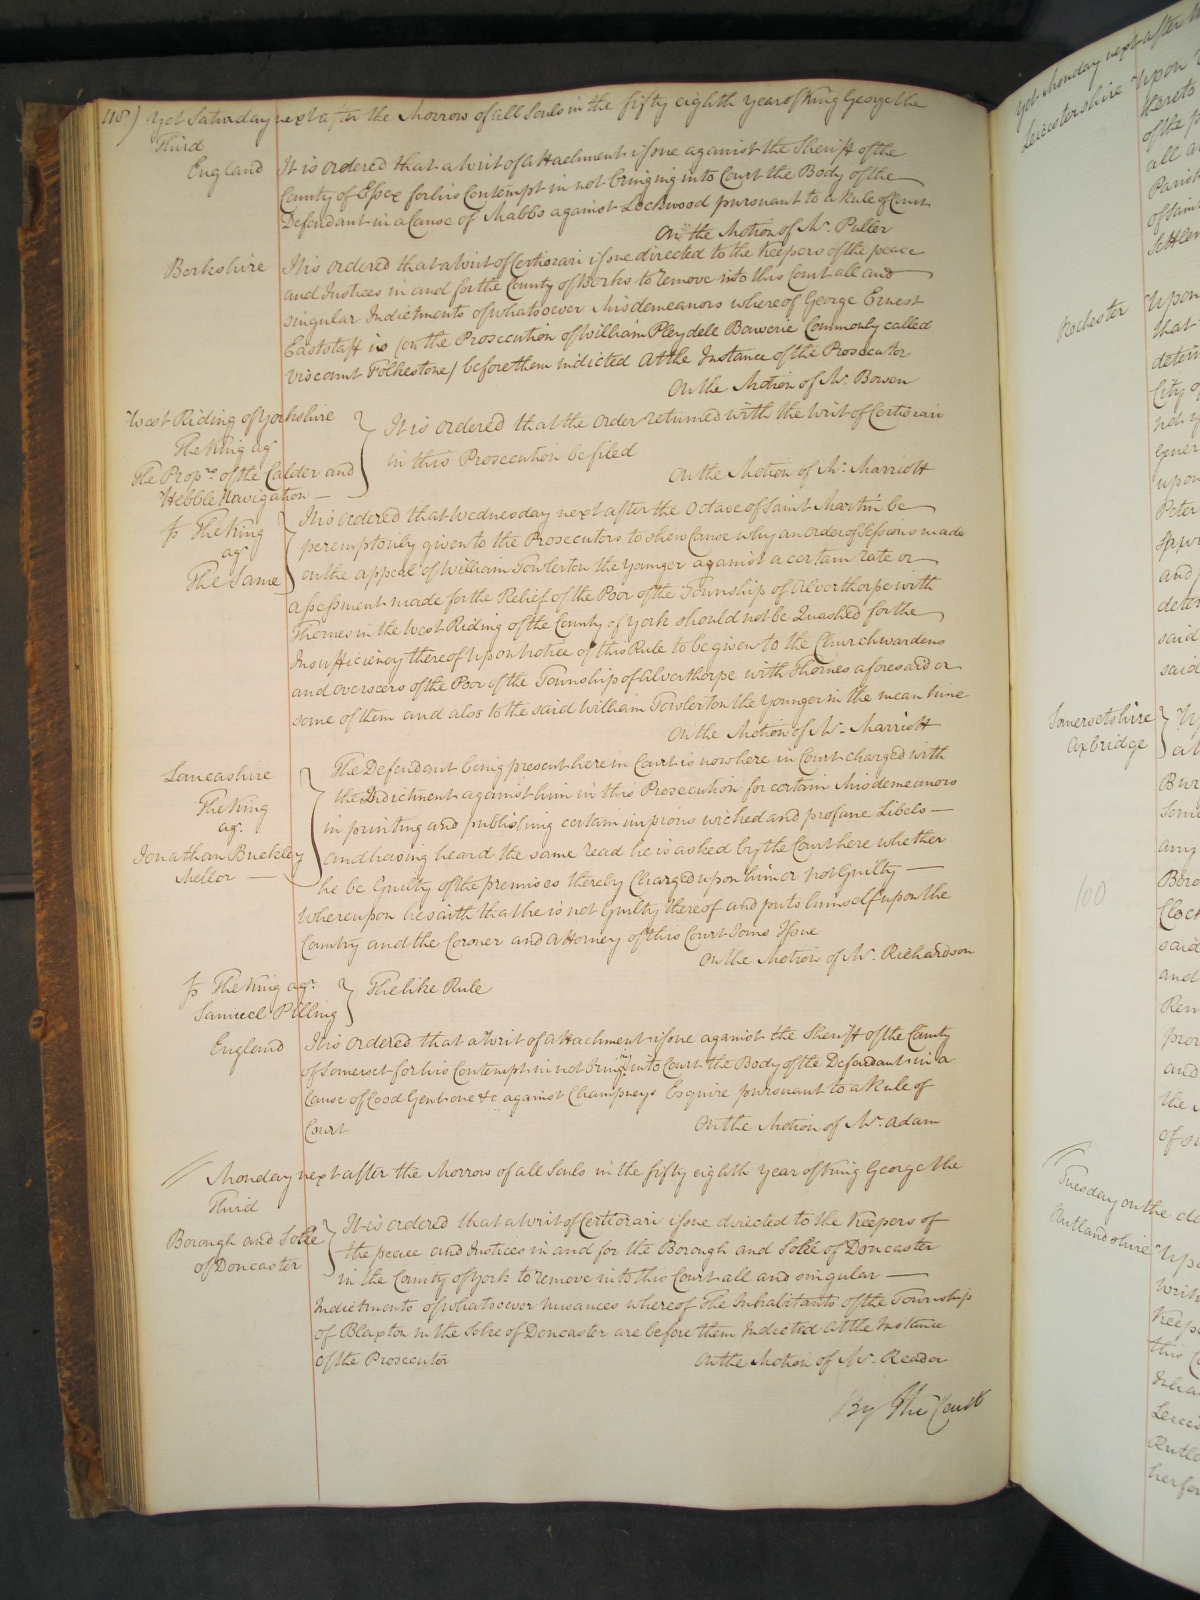 118) Yet Saturday next after the Morrow of all Souls in the fifty eighth year of King George the
Third
England It is ordered that a Writ of Attachment issue against the Sheriff of the
County of Essex for his Contempt in not bringing into Court the Body of the
Defendant in a Cause of Mabbs against Lockwood pursuant to a Rule of Court
On the Motion of Mr. Puller
Berkshire It is ordered that a Writ of Certiorari issue directed to the Keepers of the peace
and Justices in and for the County of Berks to remove into this Court all and
singular Indictments of whatsoever Misdemeanors whereof George Ernest
Eaststaff is (on the Prosecution of William Pleydele Bouverie Commonly called
Viscount Folkestone) before them indicted At the Instance of the Prosecutor
On the Motion of Mr. Bowen
West Riding of Yorkshire
The King agt
The Proprs of the Calder and
Hebble Navigation
It is ordered that the order returned with the Writ of Certiorari
in this Prosecution be filed
On the Motion of Mr. Marriott
The King
agt
The Same
It is ordered that Wednesday next after the Octave of Saint Martin be
peremptorily given to the Prosecutors to shew Cause why an order of Sessions made
on the appeal of William Fowlerton the younger against a certain rate or
assessment made for the Relief of the Poor of the Township of Alverthorpe with
Thornes in the West Riding of the County of York should not be Quashed for the
Insufficiency thereof Upon notice of this Rule to be given to the Churchwardens
and overseers of the Poor of the Township of Alverthorpe with Thornes aforesaid or
some of them and also to the said William Fowlerton the Younger in the mean time
On the Motion of Mr. Marriott
Lancashire
The King
agt.
Jonathan Buckley
Mellor
The Defendant being present here in Court is now here in Court charged with
the Indictment against him in this Prosecution for certain Misdemeanors
in printing and publishing certain impious wicked and profane Libels
and having heard the same read he is asked by the Court here whether
he be Guilty of the premises thereby Charged upon him or not Guilty
Whereupon he saith that he is not Guilty thereof and puts himself upon the
Country and the Coroner and Attorney of this Court Joins Issue
On the Motion of Mr. Richardson
The King agt.
Samuel Pilling
The like Rule
England It is ordered that a Writ of Attachment issue against the Sheriff of the County
of Somerset for his Contempt in not bringing into Court the Body of the Defendant in a
Cause of Cood Gent one &c against Champneys Esquire pursuant to a Rule of
Court
On the Motion of Mr. Adam
Monday next after the Morrow of all Souls in the fifty eighth Year of King George the
Third
Borough and Soke
of Doncaster
It is ordered that a Writ of Certiorari issue directed to the Keepers of
the peace and Justices in and for the Borough and Soke of Doncaster
in the County of York to remove into this Court all and singular
Indictments of whatsoever Nuisances whereof The Inhabitants of the Township
of Blaxton in the Soke of Doncaster are before them Indicted At the Instance
of the Prosecutor
On the Motion of Mr. Reader
By The Court
Yet Monday next after
Leicestershire Upon
thereto
of the
all
Parish
of Saint
Settlem
Rochester Upon
that
deter
City of
not
Gener
upon
Peter
and
deter
said
said
Somersetshire
Axbridge
Bur
Some
any
Boro
Clock
said
and
Rem
pro
and
the
of su
100
Tuesday on the
Rutlandshire
Writ
Keep
this
Inha
Leices
Rutla